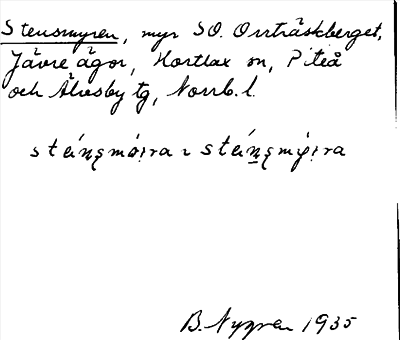 Stensmyren, myr SO. Orrträskberget,
Jävre ägor, Hortlax sn, Piteå
och Älvsby tg, Norrb. l.
B. Nygren 1935